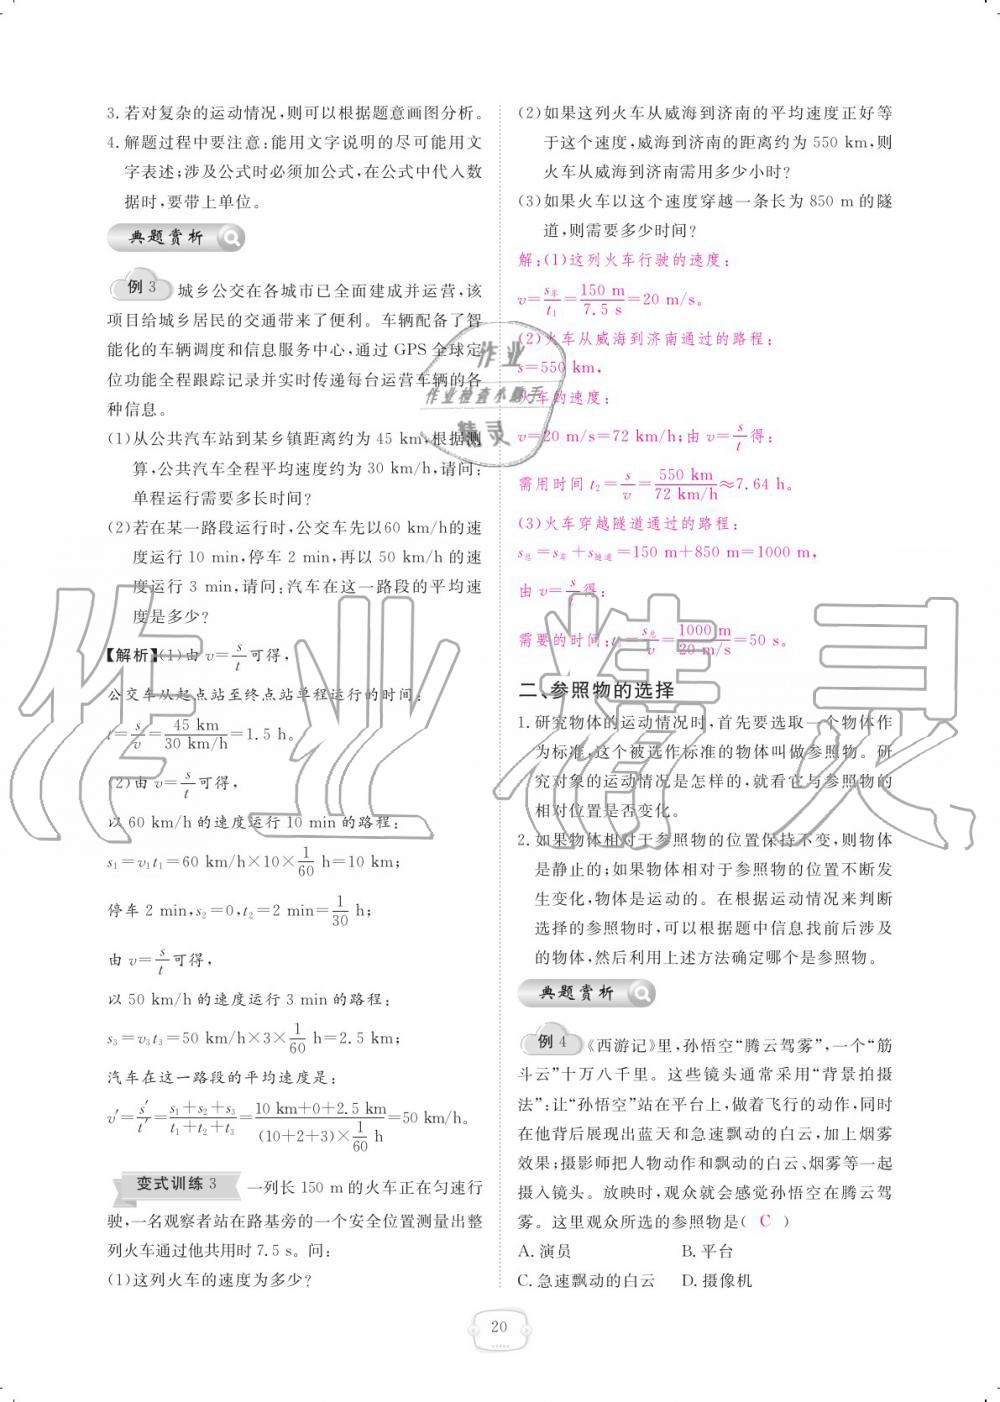 3. 若对复杂的运动情况,则可以根据题意画图分析。
4. 解题过程中要注意:能用文字说明的尽可能用文
字表述;涉及公式时必须加公式,在公式中代入数
据时,要带上单位。
典题赏析
例 3 城乡公交在各城市已全面建成并运营,该
项目给城乡居民的交通带来了便利。车辆配备了智
能化的车辆调度和信息服务中心,通过 GPS 全球定
位功能全程跟踪记录并实时传递每台运营车辆的各
种信息。
(1)从公共汽车站到某乡镇距离约为 45 km,根据测
算,公共汽车全程平均速度约为 30 km/h,请问:
单程运行需要多长时间?
(2)若在某一路段运行时,公交车先以60 km/h的速
度运行 10 min,停车 2 min,再以 50 km/h 的速
度运行 3 min,请问:汽车在这一路段的平均速
度是多少?
【解析】(1)由 v=s/t可得,
公交车从起点站至终点站单程运行的时间:
t=s/v=45 km/30 km/h=1.5 h。
(2)由 v=s/t可得,
以 60 km/h 的速度运行 10 min 的路程:
s₁=v₁t₁=60 km/h×10×1/60 h=10 km;
停车 2 min,s₂=0,t₂=2 min=1/30 h;
由 v=s/t可得,
以 50 km/h 的速度运行 3 min 的路程:
s₃=v₃t₃=50 km/h×3×1/60 h=2.5 km;
汽车在这一路段的平均速度是:
v′=s′/t′=(s₁+s₂+s₃)/(t₁+t₂+t₃)=(10 km+0+2.5 km)/((10+2+3)×1/60 h)=50 km/h。
变式训练 3 一列长 150 m 的火车正在匀速行
驶,一名观察者站在路基旁的一个安全位置测量出整
列火车通过他共用时 7.5 s。问:
(1)这列火车的速度为多少?
(2)如果这列火车从威海到济南的平均速度正好等
于这个速度,威海到济南的距离约为 550 km,则
火车从威海到济南需用多少小时?
(3)如果火车以这个速度穿越一条长为 850 m 的隧
道,则需要多少时间?
解:(1)这列火车行驶的速度:
v=s车/t₁=150 m/7.5 s=20 m/s。
(2)火车从威海到济南通过的路程:
s=550 km,
火车的速度:
v=20 m/s=72 km/h;由 v=s/t得:
需用时间 t₂=s/v=550 km/72 km/h≈7.64 h。
(3)火车穿越隧道通过的路程:
s总=s车+s隧道=150 m+850 m=1000 m,
由 v=s/t得:
需要的时间:t₃=s总/v=1000 m/20 m/s=50 s。
二、参照物的选择
1. 研究物体的运动情况时,首先要选取一个物体作
为标准,这个被选作标准的物体叫做参照物。研
究对象的运动情况是怎样的,就看它与参照物的
相对位置是否变化。
2. 如果物体相对于参照物的位置保持不变,则物体
是静止的;如果物体相对于参照物的位置不断发
生变化,物体是运动的。在根据运动情况来判断
选择的参照物时,可以根据题中信息找前后涉及
的物体,然后利用上述方法确定哪个是参照物。
典题赏析
例 4 《西游记》里,孙悟空“腾云驾雾”,一个“筋
斗云”十万八千里。这些镜头通常采用“背景拍摄
法”:让“孙悟空”站在平台上,做着飞行的动作,同时
在他背后展现出蓝天和急速飘动的白云,加上烟雾
效果;摄影师把人物动作和飘动的白云、烟雾等一起
摄入镜头。放映时,观众就会感觉孙悟空在腾云驾
雾。这里观众所选的参照物是( C )
A. 演员 B. 平台
C. 急速飘动的白云 D. 摄像机
20
作业
作业检查小助手
精灵
作业精灵